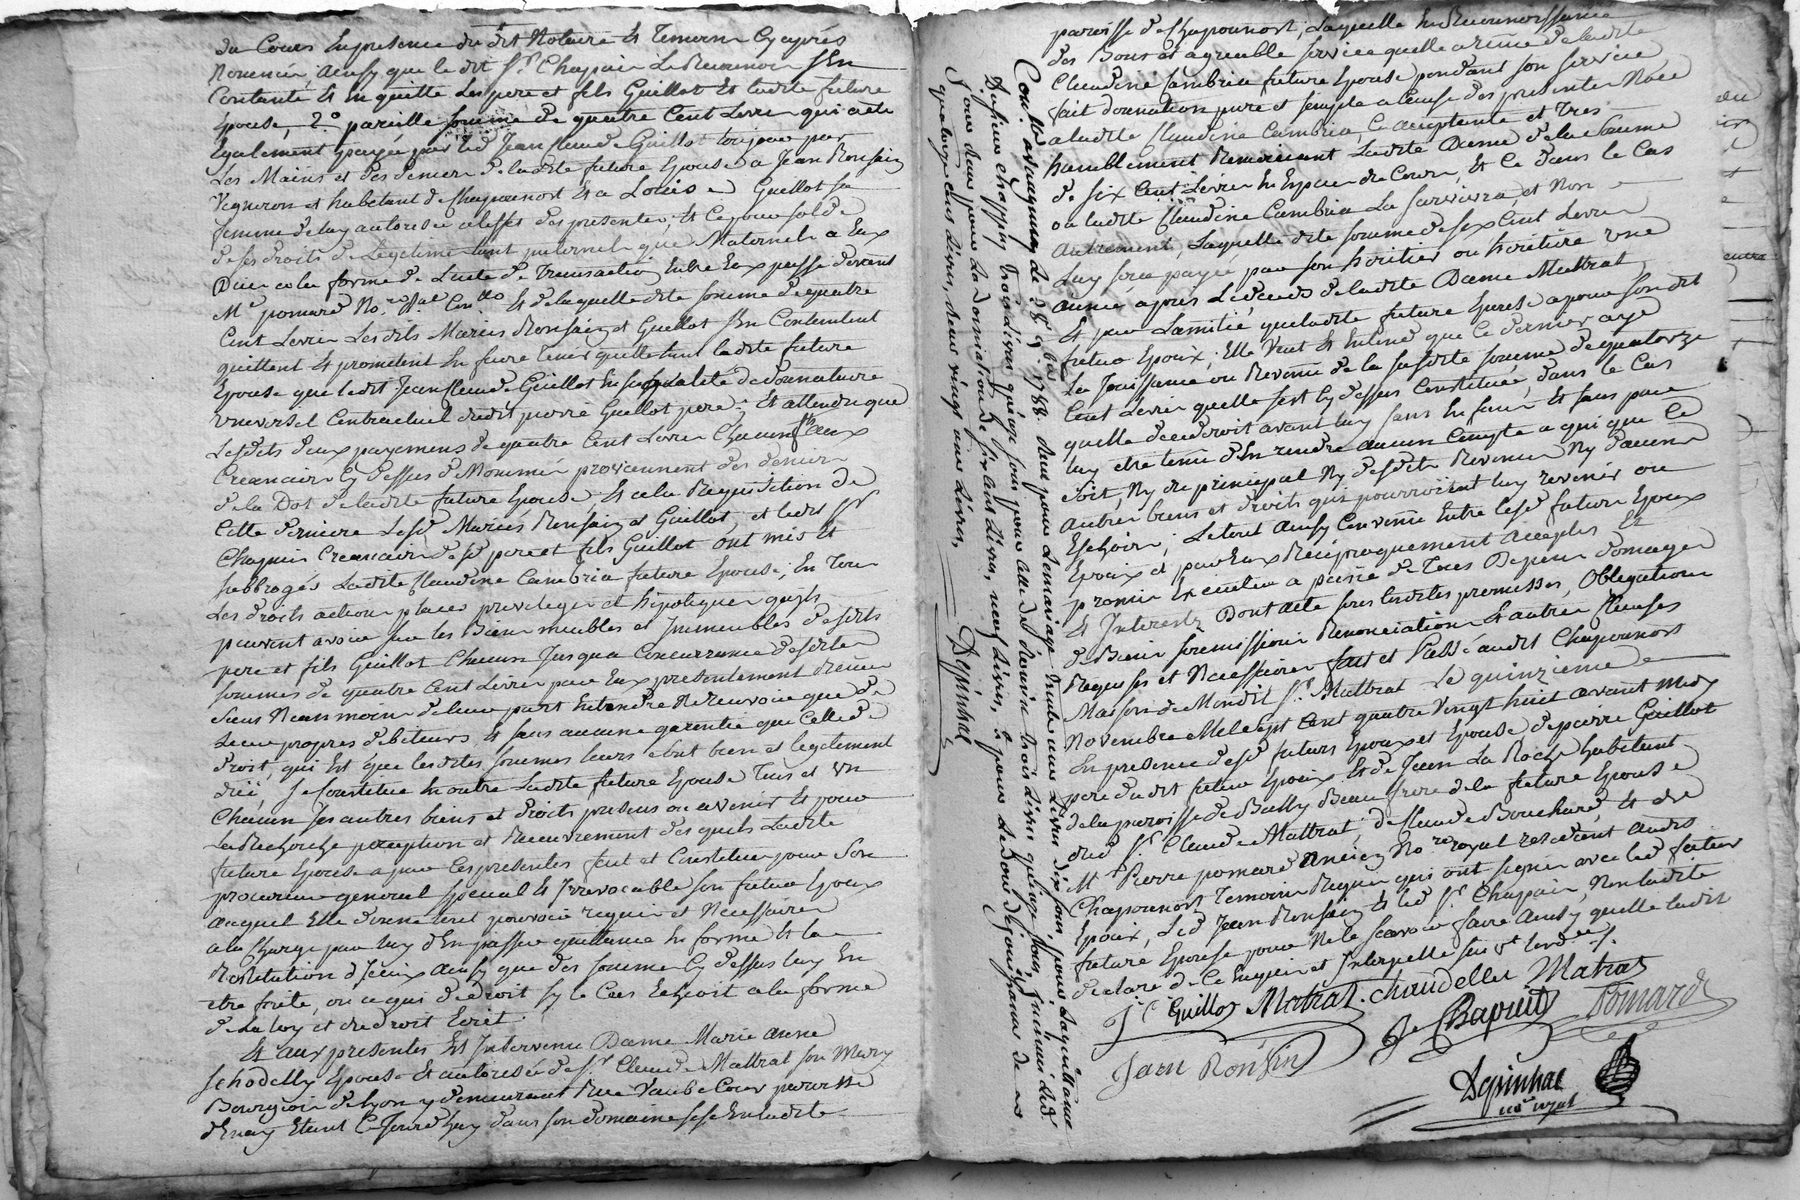 du Cours En presence du dit Notaire Et Temoins Cy aprés
Nommés, Ainsy que le dit Sr Chapuis Le Reconnoit S'En
Contente Et En quitte Les pere et fils Guillot Et ladite future
Epouse, 2.° pareille somme de quatre Cent Livres qui a été
Egalement payée par led Jean Claude Guillot toujours par
Les Mains et des deniers de ladite future Epouse a Jean Ronsain
Vigneron et habitant de Chaponost Et a Louise Guillot sa
femme de luy autorisée a l'effet des presentes, Et Ce pour solde
de ses droits de Legitime tant paternels que Maternels a Eux
Due en la forme de L'acte de Transaction Entre Eux passé devant
Me pomard No.re Et de laquelle dite somme de quatre
Cent Livres Lesdits Mariés Ronsain et Guillot S'En Contentent
quittent Et promettent En faire Tenir quitte tant ladite future
Epouse que ledit Jean Claude Guillot En sa qualité de donataire
Universel Contractuel dudit pierre Guillot pere; Et attendu que
Lesdits deux payemens de quatre Cent Livres Chacun faits aux
Creanciers Cy dessus denommés proviennent des deniers
de la Dot de ladite future Epouse, Et a la Requisition de
Cette derniere Lesd Mariés Ronsain et Guillot, et ledit Sr
Chapuis Creanciers desd pere et fils Guillot ont mis Et
subbrogés Ladite Claudine Cambria future Epouse, En Tous
Les droits actions places privileges et hipoteques qu'ils
peuvent avoir sur les Biens meubles et Immeubles desdits
pere et fils Guillot Chacun Jusqu'a Concurrence desdites
sommes de quatre Cent Livres par Eux presentement Reçues
sans Neanmoins de leur part Entendre de Renvoie que de
Leurs propres debiteurs, Et sans aucune garentie que Celle de
droit, qui Est que lesdites sommes leurs etoit bien et legitement
düe, Se Constitue En outre Ladite future Epouse Tous et Un
Chacun ses autres biens et droits presens ou avenir Et pour
La Recherche perception et Recouvrement desquels Ladite
future Epouse a par Ces presentes fait et Constitue pour Son
procureur general special Et Irrevocable son futur Epoux
auquel Elle donne tout pouvoir requis et Necessaire
a la Charge par luy d'En passer quittance En forme Et la
Restitution d'Iceux Ainsy que des sommes Cy dessus luy En
etre faite, ou a qui de droit sy le Cas Echoit a la forme
de La loy et du droit Ecrit.
Et aux presentes Est Intervenue Dame Marie anne
Schodelly Epouse Et autorisée de Sr Claude Mattrat son Mary
Bourgeois de Lyon y demeurant Rue Vaubecour paroisse
d'Enay Etant Ce Jourd'huy dans son domaine sise En ladite
paroisse de Chaponost, Laquelle En Reconnoissance
des Bons et agreable services quelle a reçue de ladite
Claudine Cambria future Epouse pendant son service
fait donnation pure et simple a Cause des presentes Noce
a ladite Claudine Cambria, Ce acceptante et Tres
humblement Remerciant Ladite Dame de la somme
de six Cent Livres En Espece du Cours, Et Ce dans le Cas
ou ladite Claudine Cambria La survivra, et Non
autrement, Laquelle dite somme de six Cent Livres
Luy sera payée par son heritier ou heritiere une
année après Le deceds de ladite Dame Mattrat,
Et par L'amitié que ladite future Epouse a pour son dit
futur Epoux, Elle Veut Et Entend que Ce dernier aye
La Jouissance ou Revenu de la susdite somme de quatorze
Cent Livres quelle s'est Cy dessus Constituée, dans le Cas
quelle decedroit avant luy sans En faire Et sans par
luy etre tenu d'En rendre aucun Compte a qui que Ce
Soit, Ny du principal Ny desdits Revenus Ny d'aucuns
autres biens et droits qui pourroient luy revenir ou
Eschoir; Le tout Ainsy Convenu Entre lesd futurs Epoux
Epoux et par Eux Réciproquement Acceptés Et
promis Executer a peine de Tous Depens domages
Et Interets Dont acte sous lesdites promesses, Obligation
de Biens soumissions Renonciations Et autres Clauses
Requises et Necessaires fait et Passé audit Chaponost
Maison de Mondit Sr Mattrat le quinzieme
Novembre Mil sept Cent quatre Vingt huit avant Midy
En presence desd futurs Epoux et Epouse de pierre Guillot
pere dudit futur Epoux Et de Jean La Roche habitant
de la paroisse de Bully Beau frere de la future Epouse
dud Sr Claude Mattrat, de Claude Bouchard, Et de
Me Pierre pomard Ancien No.re royal residant audit
Chaponost Temoins Requis qui ont signé avec led futur
Epoux, Led Jean Ronsain Et led Sr Chapuis, Non ladite
future Epouse pour Ne le sçavoir faire Ainsy quelle ladit
declaré de Ce Enquis et Interpellé
J. C. Guillot Matrat. chaudelles Matrat
Je Chapuit Pomard
Jean Ronsin
Depinhac
no.re royal
Con.lé a Brignay le 28 9bre 1788. Reçu pour Le mariage trente une Livres dix sous, pour La quittance
Du sieur Chappuy Trois Livres quinze sous pour celle de Ronsin trois Livres quinze sous,
Sous deux pour La donnation de six cent Livres, neuf Livres, & pour Le don de Jouissance de
quatorze cens Livres,
Depinhac